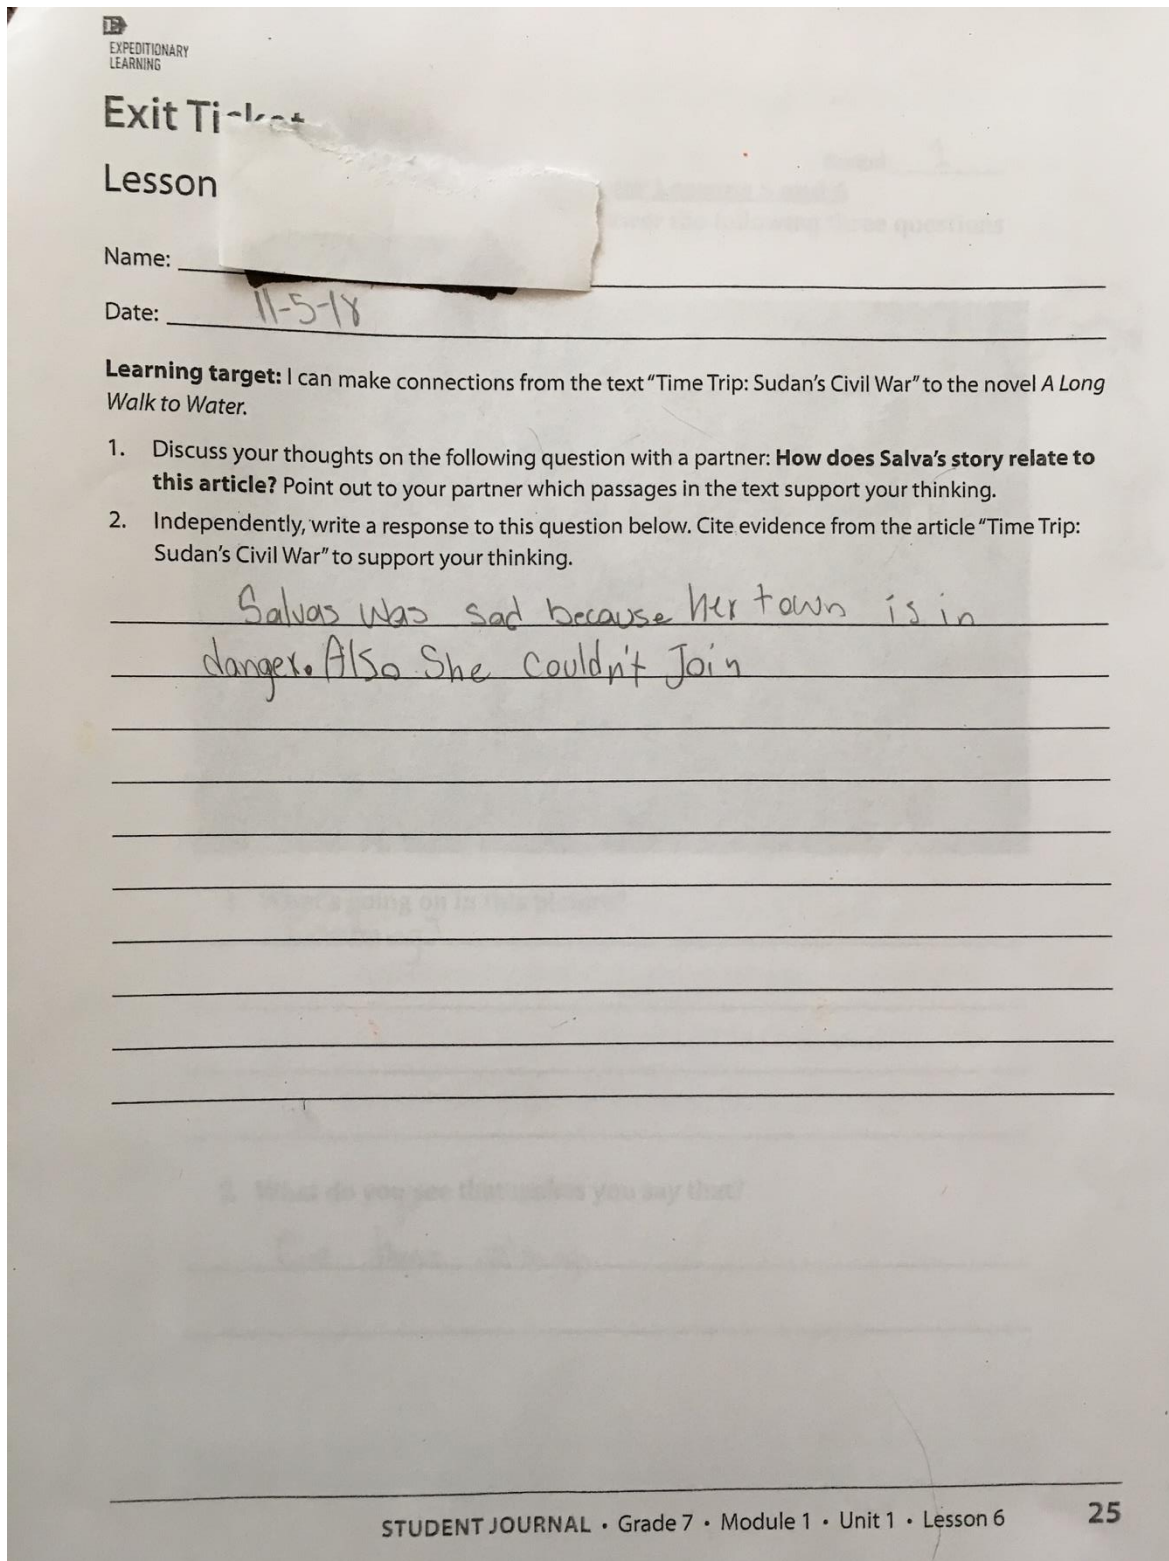 EXPEDITIONARY
LEARNING
Exit Ticket
Lesson
Name:
Date: 11-5-18
Learning target: I can make connections from the text “Time Trip: Sudan’s Civil War” to the novel A Long
Walk to Water.
1. Discuss your thoughts on the following question with a partner: How does Salva’s story relate to
this article? Point out to your partner which passages in the text support your thinking.
2. Independently, write a response to this question below. Cite evidence from the article “Time Trip:
Sudan’s Civil War” to support your thinking.
Salvas was sad because her town is in
danger. Also She couldn't Join
2. What do you see that makes you say that?
STUDENT JOURNAL • Grade 7 • Module 1 • Unit 1 • Lesson 6 25